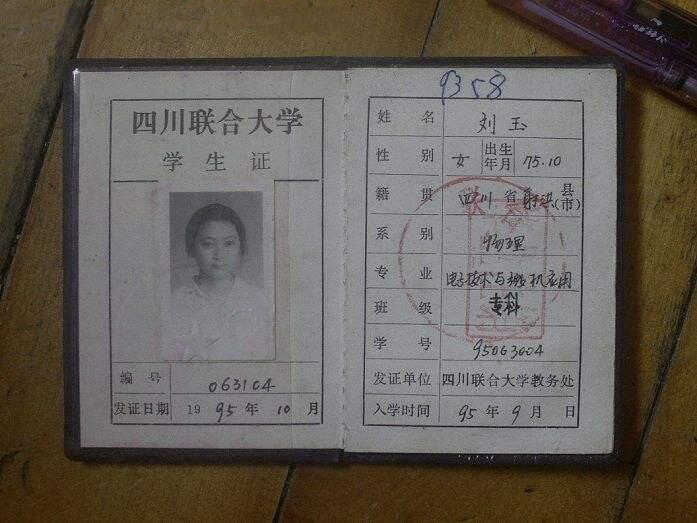 四川联合大学
学生证
编号 063104
发证日期 1995年10月
9358
姓名 刘玉
性别 女 出生年月 75.10
籍贯 四川省射洪县(市)
系别 物理
专业 电子技术与微机应用
班级 专科
学号 95063004
发证单位 四川联合大学教务处
入学时间 95年9月 日